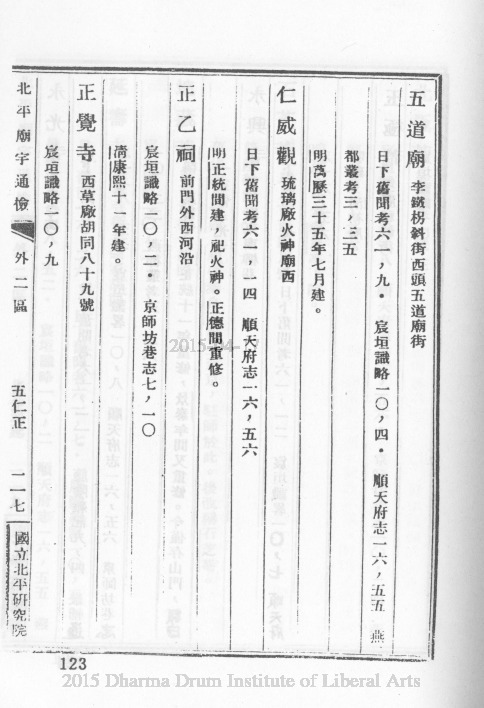 五道廟 李鐵枴斜街西頭五道廟街
日下舊聞考六一，九· 宸垣識略一〇，四· 順天府志一六，五五 燕
都叢考三，三五
明萬曆三十五年七月建。
仁威觀 琉璃廠火神廟西
日下舊聞考六一，一四 順天府志一六，五六
明正統間建，祀火神。正德間重修。
正乙祠 前門外西河沿
宸垣識略一〇，二· 京師坊巷志七，一〇
清康熙十一年建。
正覺寺 西草廠胡同八十九號
宸垣識略一〇，九
北平廟宇通檢 外二區 五仁正 一一七 國立北平研究院
123
2015 Dharma Drum Institute of Liberal Arts